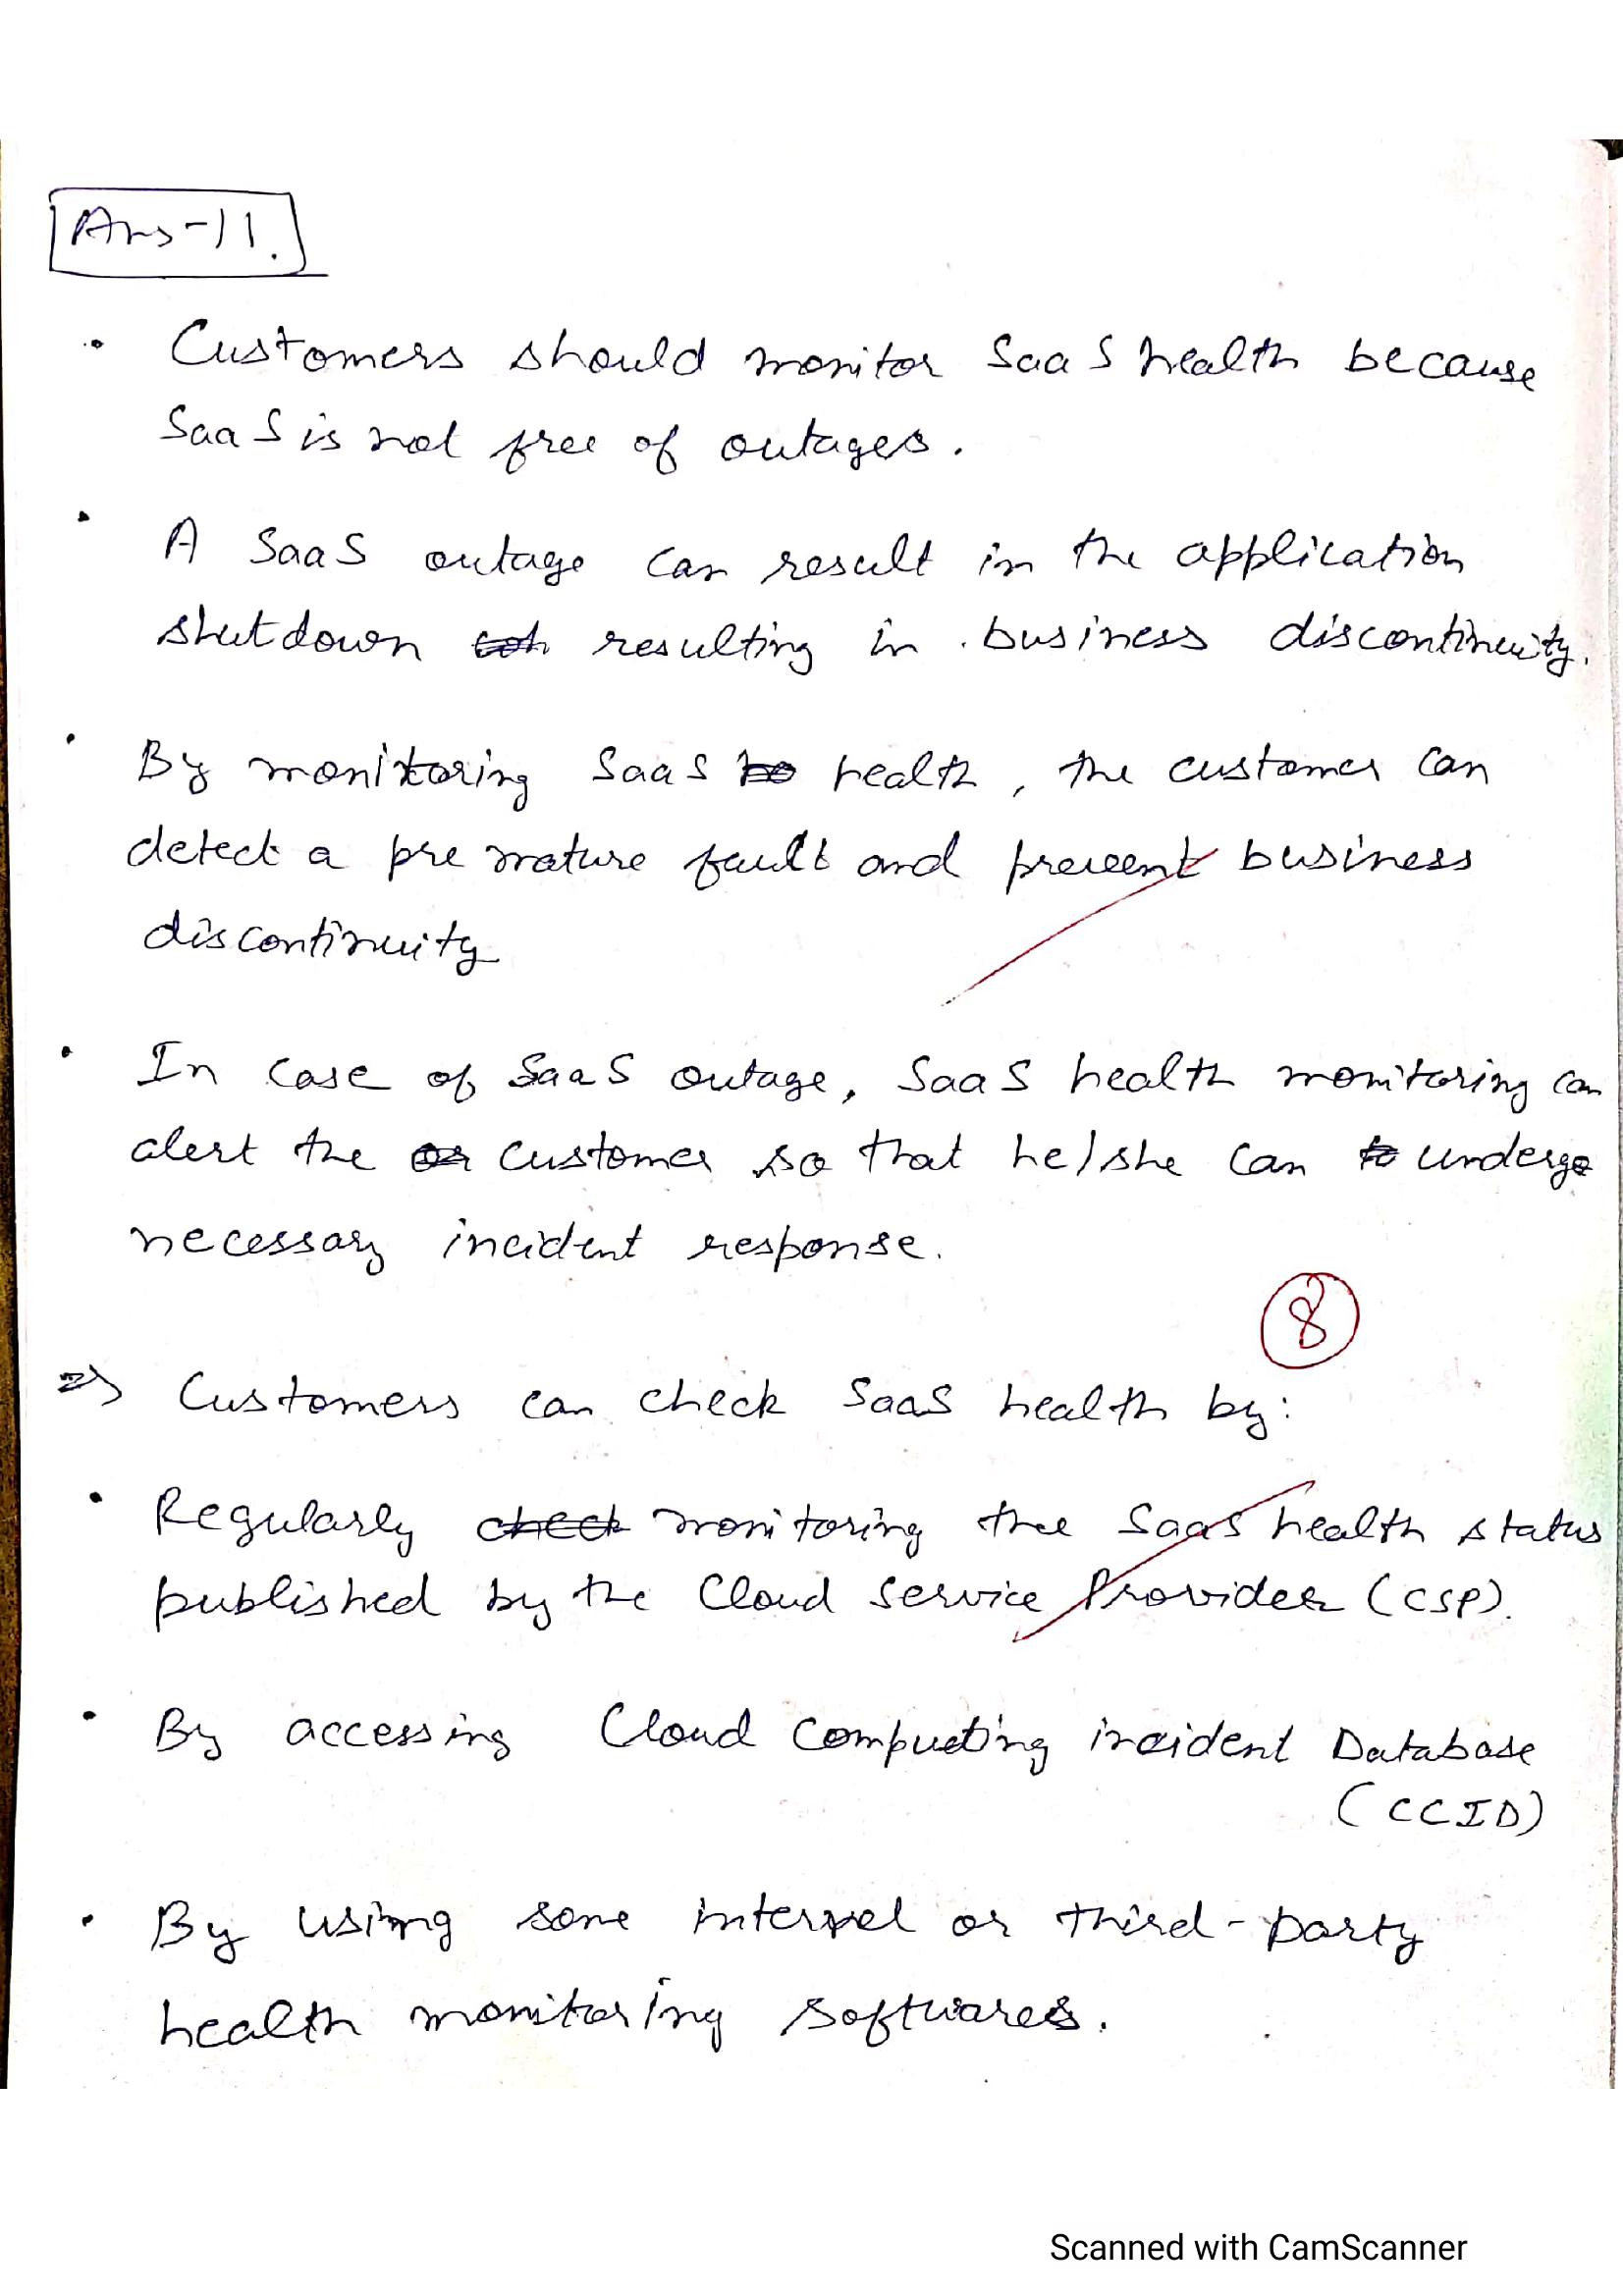 Ans-11.
• Customers should monitor SaaS health because
SaaS is not free of outages.
• A SaaS outage can result in the application
shutdown resulting in business discontinuity.
• By monitoring SaaS health, the customer can
detect a pre mature fault and prevent business
discontinuity
• In case of SaaS outage, SaaS health monitoring can
alert the customer so that he/she can undergo
necessary incident response.
8
=> Customers can check SaaS health by:
• Regularly monitoring the SaaS health status
published by the Cloud Service Provider (CSP).
• By accessing Cloud Computing incident Database
(CCID)
• By using some internel or third-party
health monitoring softwares.
Scanned with CamScanner